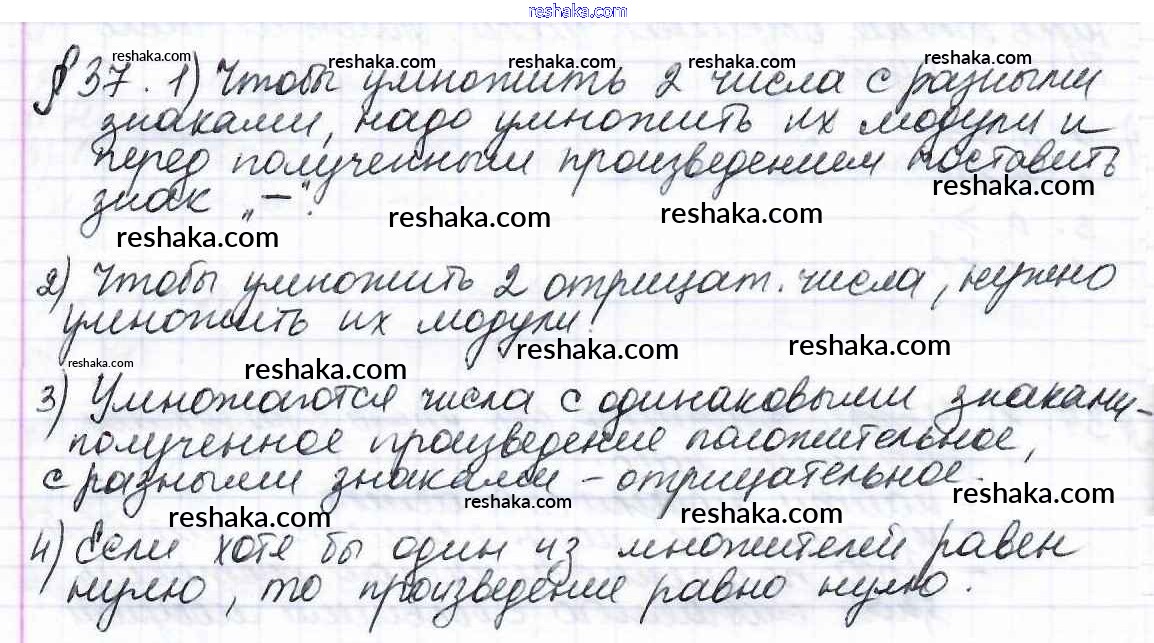 reshaka.com
reshaka.com reshaka.com reshaka.com reshaka.com reshaka.com
§ 37. 1) Чтобы умножить 2 числа с разными
знаками, надо умножить их модули и
перед полученным произведением поставить
знак „–".
reshaka.com reshaka.com reshaka.com reshaka.com
2) Чтобы умножить 2 отрицат. числа, нужно
умножить их модули.
reshaka.com reshaka.com reshaka.com reshaka.com
3) Умножаются числа с одинаковыми знаками –
полученное произведение положительное,
с разными знаками – отрицательное.
reshaka.com reshaka.com reshaka.com reshaka.com
4) Если хотя бы один из множителей равен
нулю, то произведение равно нулю.